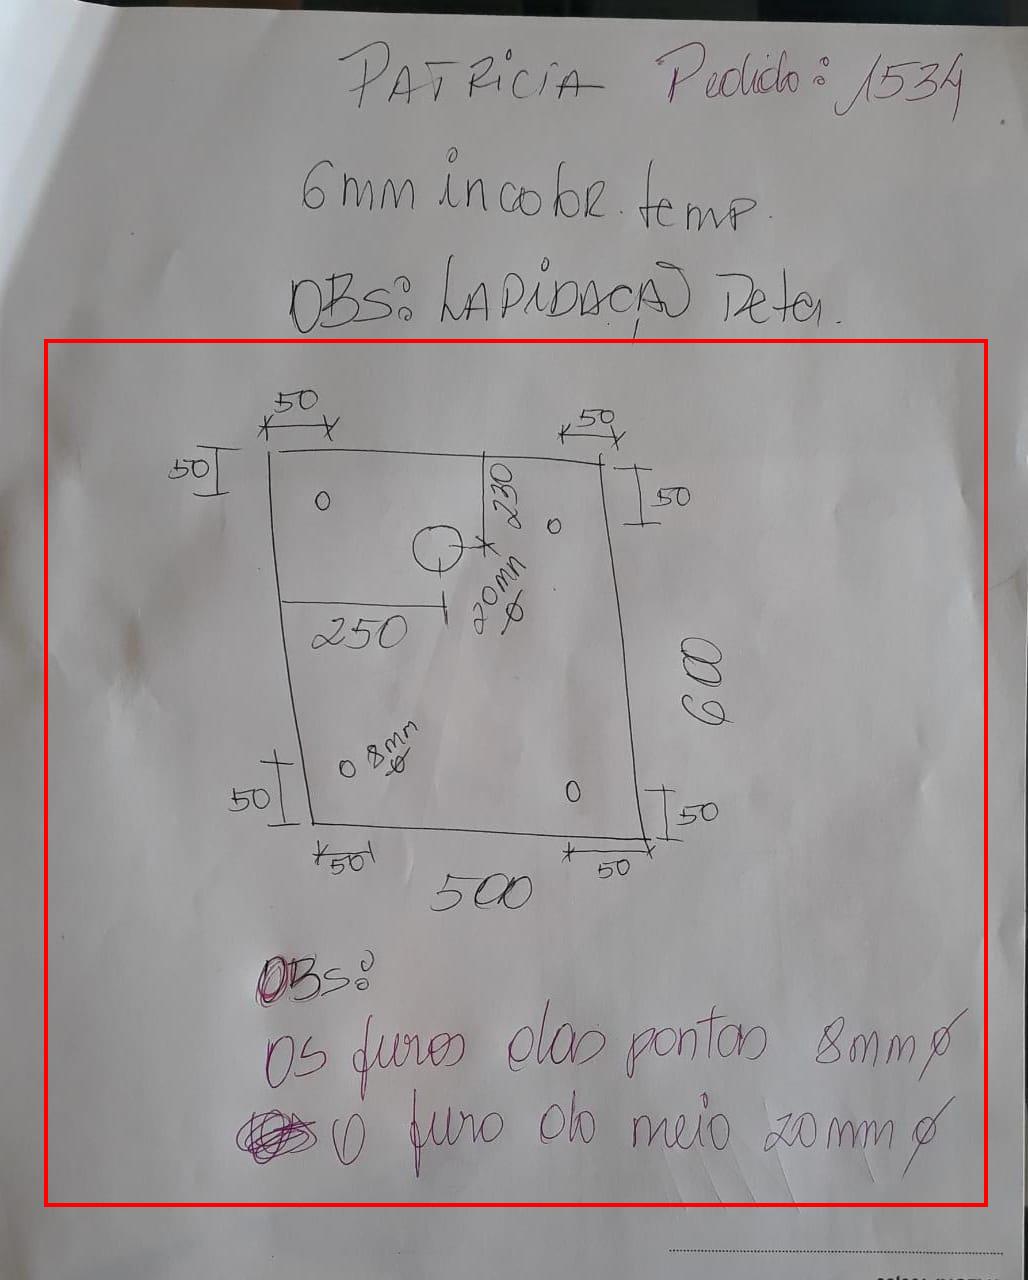 PATRICIA Pedido: 1534
6mm incolor. temp.
OBS: LAPIDAÇAO Reta.
50
50
50
50
230
20mm
ø
250
600
8mm
ø
50
50
50
50
500
OBS:
OS furos das pontas 8mmø
O furo do meio 20mmø